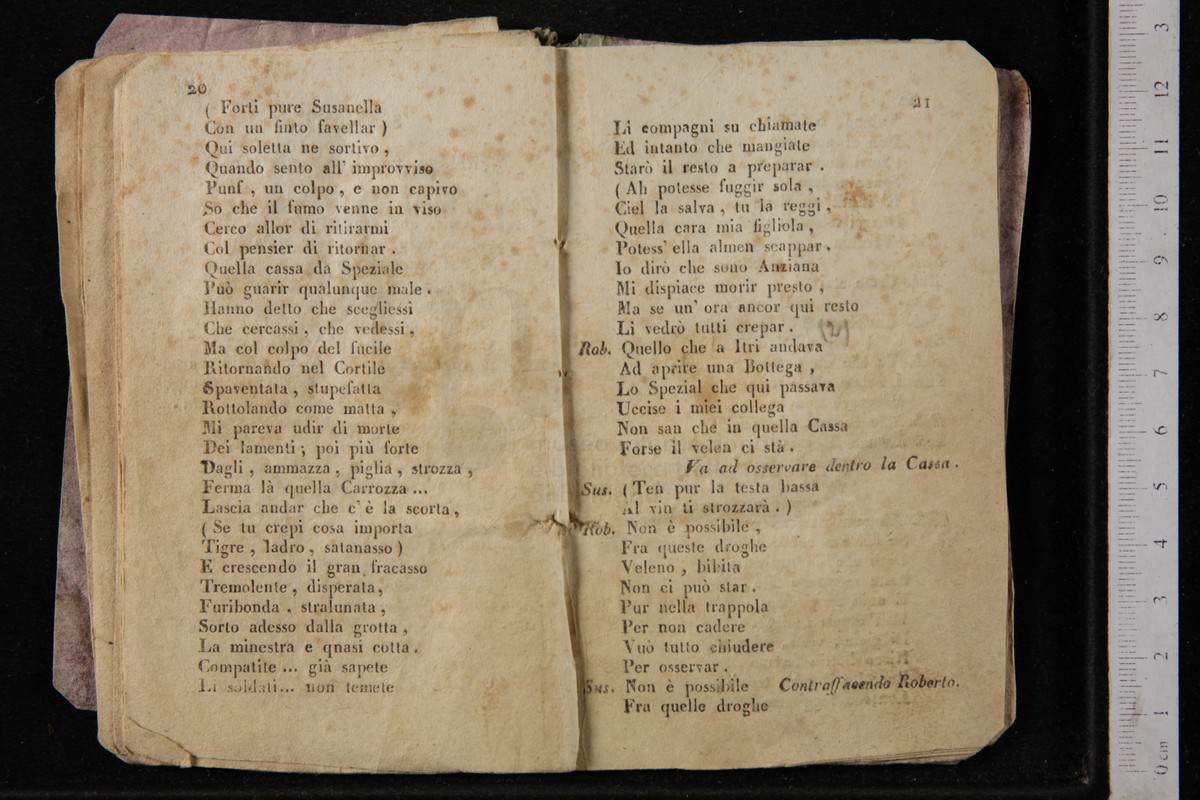 20
( Forti pure Susanella
Con un finto favellar )
Qui soletta ne sortivo ,
Quando sento all' improvviso
Punf , un colpo , e non capivo
So che il fumo venne in viso
Cerco allor di ritirarmi
Col pensier di ritornar .
Quella cassa da Speziale
Può guarir qualunque male .
Hanno detto che scegliessi
Che cercassi , che vedessi ,
Ma col colpo del fucile
Ritornando nel Cortile
Spaventata , stupefatta
Rottolando come matta ,
Mi pareva udir di morte
Dei lamenti ; poi più forte
Dagli , ammazza , piglia , strozza ,
Ferma là quella Carrozza ...
Lascia andar che c' è la scorta ,
( Se tu crepi cosa importa
Tigre , ladro , satanasso )
E crescendo il gran fracasso
Tremolente , disperata ,
Furibonda , stralunata ,
Sorto adesso dalla grotta ,
La minestra e qnasi cotta .
Compatite ... già sapete
Li soldati ... non temete
21
Li compagni su chiamate
Ed intanto che mangiate
Starò il resto a preparar .
( Ah potesse fuggir sola ,
Ciel la salva , tu la reggi ,
Quella cara mia figliola ,
Potess' ella almen scappar .
Io dirò che sono Anziana
Mi dispiace morir presto ,
Ma se un' ora ancor qui resto
Li vedrò tutti crepar . (2)
Rob. Quello che a Itri andava
Ad aprire una Bottega ,
Lo Spezial che qui passava
Uccise i miei collega
Non san che in quella Cassa
Forse il velen ci stà .
Va ad osservare dentro la Cassa .
Sus. ( Ten pur la testa bassa
Al vin ti strozzarà . )
Rob. Non è possibile ,
Fra queste droghe
Veleno , bibita
Non ci può star .
Pur nella trappola
Per non cadere
Vuò tutto chiudere
Per osservar .
Sus. Non è possibile Contraffacendo Roberto.
Fra quelle droghe